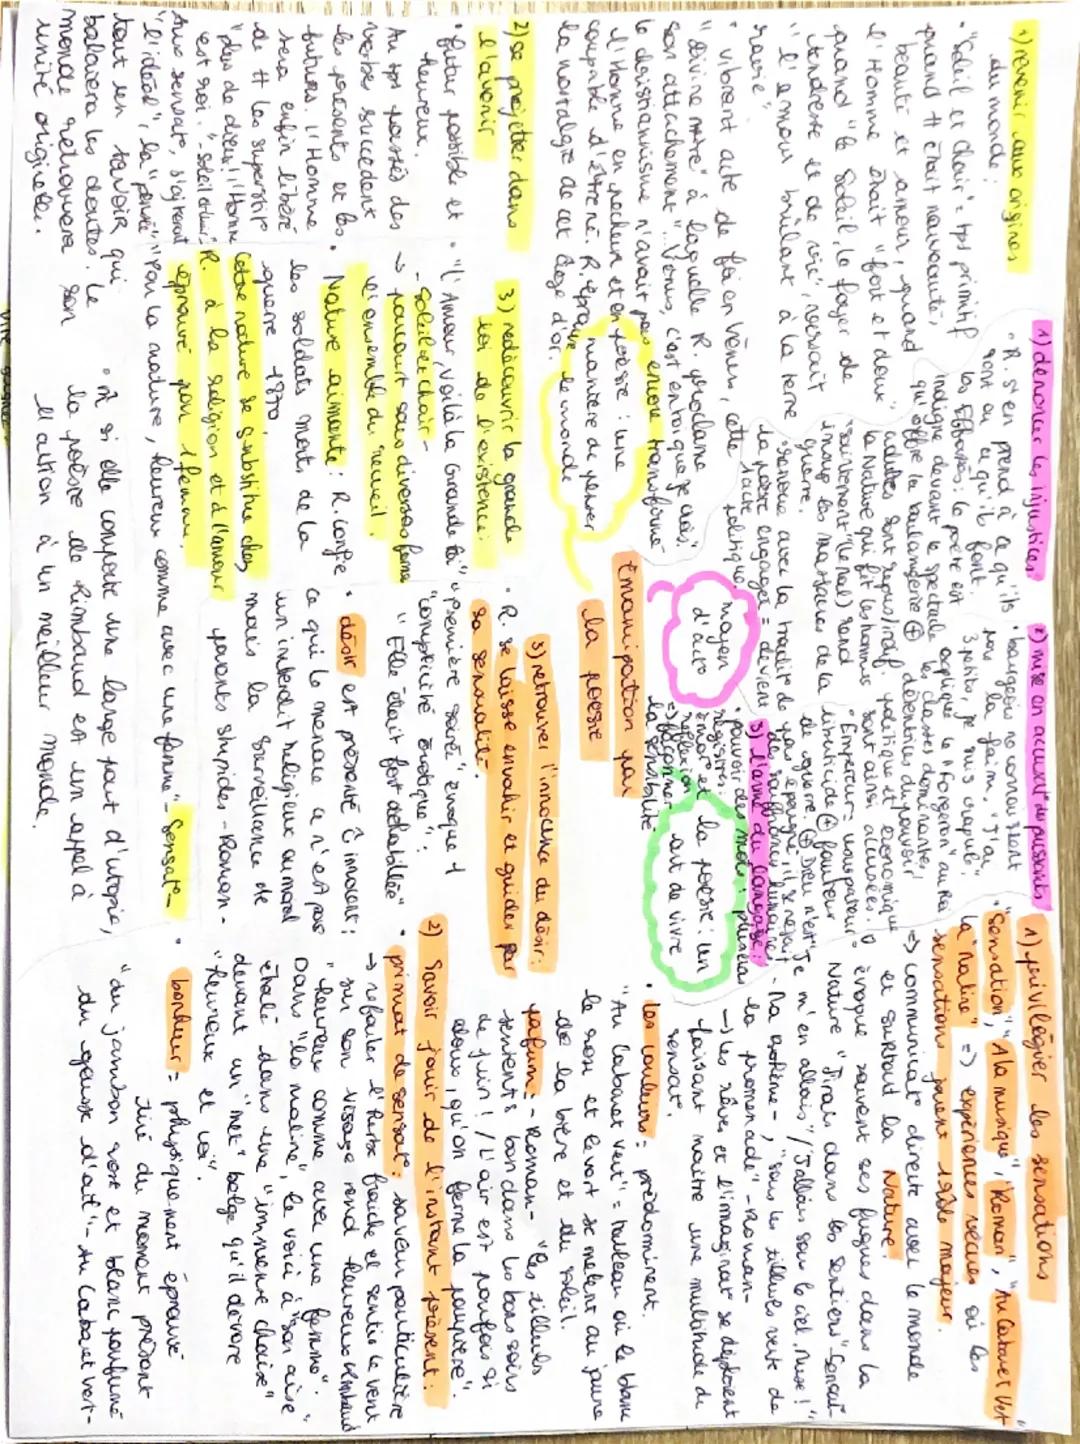 1) revenir aux origines
du monde :
• "Soleil et chair" = tps primitif
quand tt était nouveauté,
beauté et amour, quand
l'Homme était "fort et doux",
quand "le Soleil, le foyer de
tendresse et de vie", versait
"l'amour brûlant à la terre
ravie".
• vibrant acte de foi en Vénus, cette
"divine mère" à laquelle R. proclame
son attachement "...Vénus, c'est en toi que je crois".
le christianisme n'avait pas encore transformé
l'Homme en pécheur et en
coupable d'être né. R. éprouve
la nostalgie de cet âge d'or.
poésie : une
manière de penser
le monde
2) se projeter dans
l'avenir
• futur possible et
heureux.
Au tps passés des
verbes succèdent
les présents et les
futurs. L'Homme
sera enfin libéré
de tt les superst°
"plus de dieux ! l'Homme
est roi." -soleil et chair-
"l'idéal", la "pensée",
tout un savoir qui
balaiera les doutes. Le
monde retrouvera son
unité originelle.
3) redécouvrir la grande
loi de l'existence :
• "l'Amour, voilà la Grande foi"
-soleil et chair-
→ parcourt sous diverses formes
l'ensemble du recueil.
• Nature aimante : R. confie
les soldats morts de la
guerre 1870.
Cette nature se substitue chez
R. à la religion et à l'amour
éprouvé pour 1 femme.
"Par la nature, heureux comme avec une femme" - Sensat° -
• Et si elle comporte une large part d'utopie,
la poésie de Rimbaud est un appel à
l'action à un meilleur monde.
1) dénoncer les injustices :
• R. s'en prend à ce qu'ils
sont ou ce qu'il font.
Les Effarés : le poète est
indigné devant le spectacle
qu'offre la boulangerie ⊕
la Nature qui fit les hommes
"saintement" (le mal) rend
insup les massacres de la
guerre.
• renoue avec la tradit° de
la poésie engagée = devient
1 acte
politique
moyen
d'act°
2) mise en accusat° des puissants
• bourgeois ne connaissent
pas la faim. "J'ai
3 petits, je suis crapule"
explique le "Forgeron" au Roi
les classes dominantes,
détentrices du pouvoir
politique et économique
sont ainsi accusées.
• Empereur = uns pareur
liberticide ⊕ fauteur
de guerre. ⊕ Dieu n'est
pas épargné, il se rejait
des souffrances humaines
3) l'arme du langage :
• pouvoir des mots : plusieurs
registres :
émot° et
réflexion
=> façonner
la sensibilité.
la poésie : un
art de vivre
Émancipation par
la poésie
3) retrouver l'innocence du désir :
• R. se laisse envahir et guider par
sa sensualité.
"Première soirée" évoque 1
"complicité érotique" :
"Elle était fort déshabillée"
• désir est présenté ĉ innocent :
ce qui le menace ce n'est pas
un interdit religieux ou moral
mais la surveillance de
parents stupides - Roman -
1) privilégier les sensations
"Sensation", "A la musique", "Roman", "Au Cabaret Vert"
la "Maline" => expériences vécues où les
sensations jouent 1 rôle majeur.
=> communicat° directe avec le monde
et surtout la Nature
évoque souvent ses fugues dans la
Nature "J'irai dans les sentiers" Sensat°
"Je m'en allais" / "J'allais sous le ciel, Muse !"
- Ma Bohème - ; "sous les tilleuls verts de
la promenade" - Roman -
→ les rêves et l'imaginat° se déploient
faisant naître une multitude de
sensat°.
• les couleurs = prédominent.
"Au Cabaret Vert" = tableau où le blanc
le rose et le vert se mêlent au jaune
de la bière et du soleil.
parfum = - Roman - "les tilleuls
sentent bon dans les bons soirs
de juin ! / L'air est parfois si
doux, qu'on ferme la paupière".
2) savoir jouir de l'instant présent :
• primat de sensat° : saveur particulière
→ refouler l'herbe fraîche et sentir le vent
sur son visage rend heureux Rimbaud
"heureux comme avec une femme".
Dans "la maline", le voici à "son aise"
étalé dans une "immense chaise"
devant un "met" belge qu'il dévore
"heureux et coi".
• bonheur = physiquement éprouvé
tiré du moment présent
"du jambon rose et blanc parfumé
du gousse d'ail" - Au Cabaret vert -